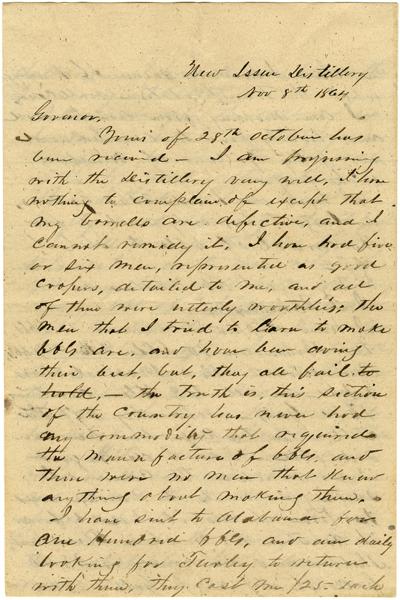 New Issue Distillery
Nov 8th 1864
Governor,
Yours of 28th October has
been received – I am progressing
with the Distillery very well, & have
nothing to complain of except that
my barrells are defective, and I
cannot remedy it. I have had five
or six men, represented as good
coopers, detailed to me, and all
of them were utterly worthless; the
men that I tried to learn to make
bbls are, and have been doing
their best, but, they all fail to
hold. – the truth is, this section
of the Country has never had
any commodity that required
the manufacture of bbls, and
there were no men that knew
anything about making them.
– I have sent to Alabama for
one Hundred bbls, and am daily
looking for Turley to return
with them, they cost me $25– each